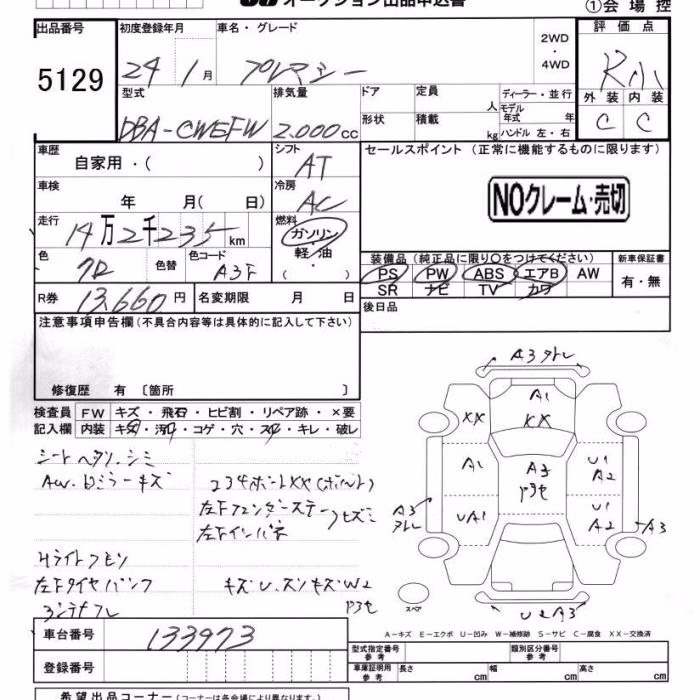 オークション出品申込書
①会場控
出品番号
5129
初度登録年月
24 1月
車名・グレード
プレマシー
2WD
・
4WD
評価点
R小
外装 内装
C C
型式
DBA-CWEFW
排気量
2.000cc
ドア
形状
定員 人
積載 kg
ディーラー・並行
モデル年式 年
ハンドル 左・右
車歴
自家用・( )
シフト
AT
セールスポイント (正常に機能するものに限ります)
NOクレーム・売切
車検
年 月( 日)
冷房
AC
走行
14万2千235km
燃料
ガソリン
軽油
( )
色
クロ
色替
色コード
A3F
装備品 (純正品に限り○をつけてください)
PS PW ABS エアB AW
SR ナビ TV カワ
新車保証書
有・無
R券 13,660円
名変期限 月 日
後日品
注意事項申告欄(不具合内容等は具体的に記入して下さい)
修復歴 有〔箇所 〕
検査員 FW キズ・飛石・ヒビ割・リペア跡・×要
記入欄 内装 キズ・汚れ・コゲ・穴・スレ・キレ・破レ
シートヘタリ、シミ
AW.ドミラーキズ
Hライトクモリ
左下タイヤパンク
左下フェンダーステー
左下インパネ
キズU.ズレキズW2
A3
A1
XX
XX
A1
A3
U1
A2
UA1
U1
A2
A3
A3
U2A3
スペア
A-キズ E-エクボ U-凹み W-補修跡 S-サビ C-腐食 XX-交換済
車台番号
133973
登録番号
型式指定番号
参考
類別区分番号
参考
車庫証明用
参考
長さ cm
幅 cm
高さ cm
希望出品コーナー(コーナーは各会場により異なります。)